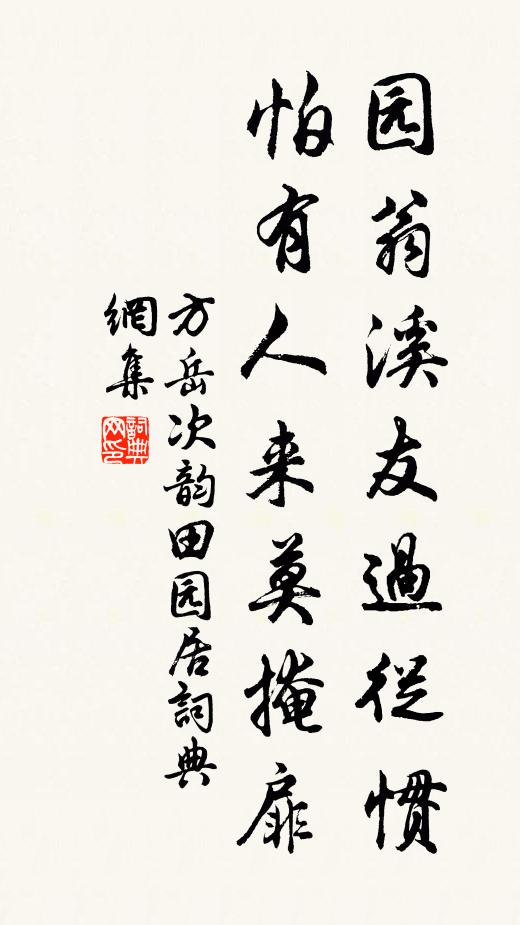 园翁溪友過從惯
怕有人来莫掩扉
方岳次韵田园居詞典
網集
詞典网印